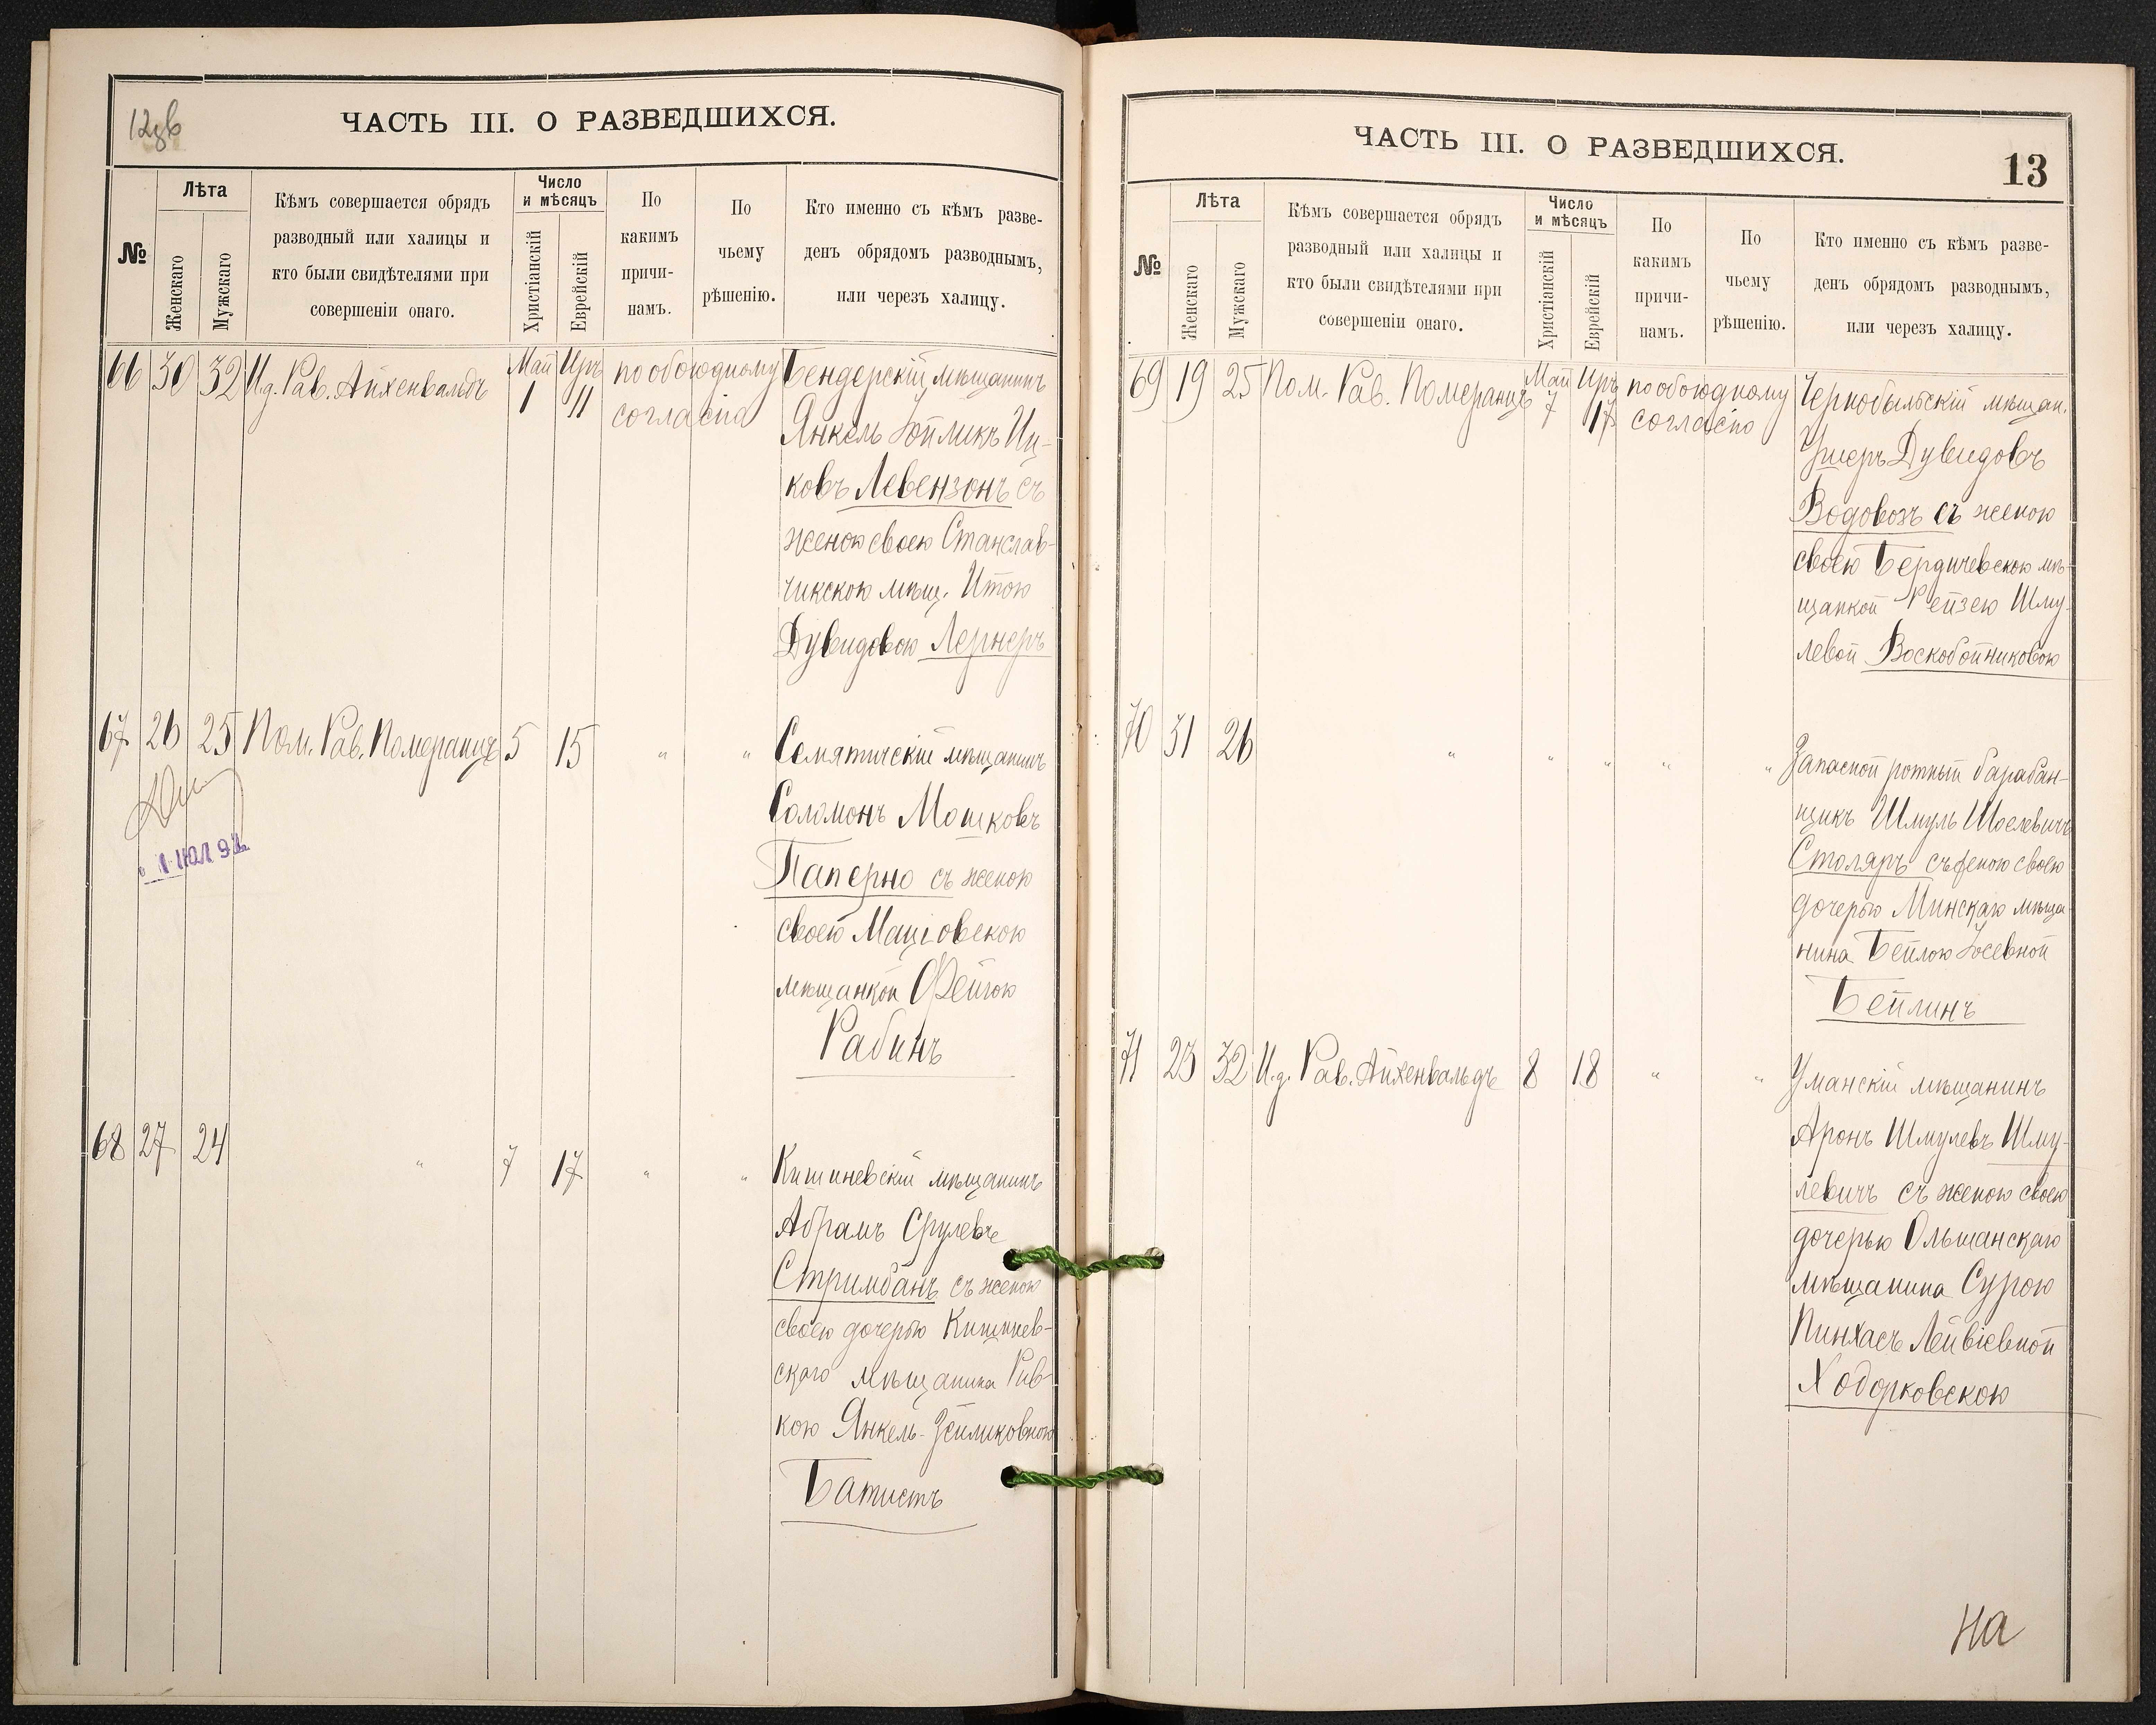 12об
ЧАСТЬ III. О РАЗВЕДШИХСЯ.
№
Лѣта
Женскаго
Мужскаго
Кѣмъ совершается обрядъ
разводный или халицы и
кто были свидѣтелями при
совершеніи онаго.
Число
и мѣсяцъ
Христіанскій
Еврейскій
По
какимъ
причи-
намъ.
По
чьему
рѣшенію.
Кто именно съ кѣмъ разве-
денъ обрядомъ разводнымъ,
или черезъ халицу.
66 30 32 И.д. Рав. Айхенвальдъ Май 1 Иръ 11 по обоюдному
согласію
Бендерскій мѣщанинъ
Янкель Зейликъ Иц-
ковъ Левензонъ съ
женою своею Станслав-
чикскою мѣщ. Итою
Дувидовою Лернеръ
67 26 25 Пом. Рав. Померанцъ 5 15 " "
Семятичскій мѣщанинъ
Соломонъ Мошковъ
Паперно съ женою
своею Маціовскою
мѣщанкой Фейгою
Рабинъ
1 ИЮЛ 9
68 27 24 " 7 17 " "
Кишиневскій мѣщанинъ
Абрамъ Срулевъ
Стримбанъ съ женою
своею дочерью Кишинев-
скаго мѣщанина Рив-
кою Янкель-Зейликовною
Батистъ
ЧАСТЬ III. О РАЗВЕДШИХСЯ.
13
№
Лѣта
Женскаго
Мужскаго
Кѣмъ совершается обрядъ
разводный или халицы и
кто были свидѣтелями при
совершеніи онаго.
Число
и мѣсяцъ
Христіанскій
Еврейскій
По
какимъ
причи-
намъ.
По
чьему
рѣшенію.
Кто именно съ кѣмъ разве-
денъ обрядомъ разводнымъ,
или черезъ халицу.
69 19 25 Пом. Рав. Померанцъ Май 7 Иръ 17 по обоюдному
согласію
Чернобыльскій мѣщан.
Ушеръ Дувидовъ
Водовозъ съ женою
своею Бердичевскою мѣ-
щанкой Рейзею Шму-
левой Воскобойниковою
70 31 26 " " " " "
Запасной ротный барабан-
щикъ Шмуль Шоелевичъ
Столяръ съ женою своею
дочерью Минскаго мѣща-
нина Бейлою Іосевной
Бейлинъ
71 23 32 И.д. Рав. Айхенвальдъ 8 18 " "
Уманскій мѣщанинъ
Аронъ Шмулевъ Шму-
левичъ съ женою своею
дочерью Ольшанскаго
мѣщанина Сурою
Пинхасъ Лейвіевной
Ходорковскою
На